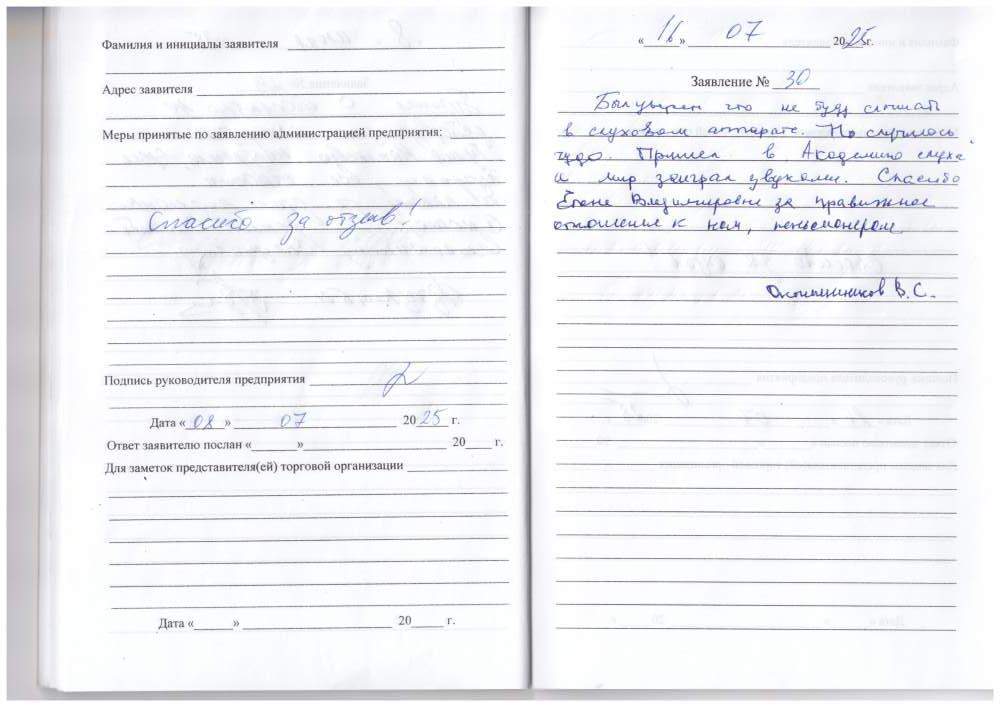 Фамилия и инициалы заявителя
Адрес заявителя
Меры принятые по заявлению администрацией предприятия:
Спасибо за отзыв!
Подпись руководителя предприятия
Дата «08» 07 2025 г.
Ответ заявителю послан «   » 20   г.
Для заметок представителя(ей) торговой организации
Дата «   » 20   г.
«16» 07 2025г.
Заявление № 30
Был уверен что не буду слышать
в слуховом аппарате. Но случилось
чудо. Пришел в Академию слуха
и мир заиграл звуками. Спасибо
Елене Владимировне за правильное
отношение к нам, пенсионерам.
В.С.